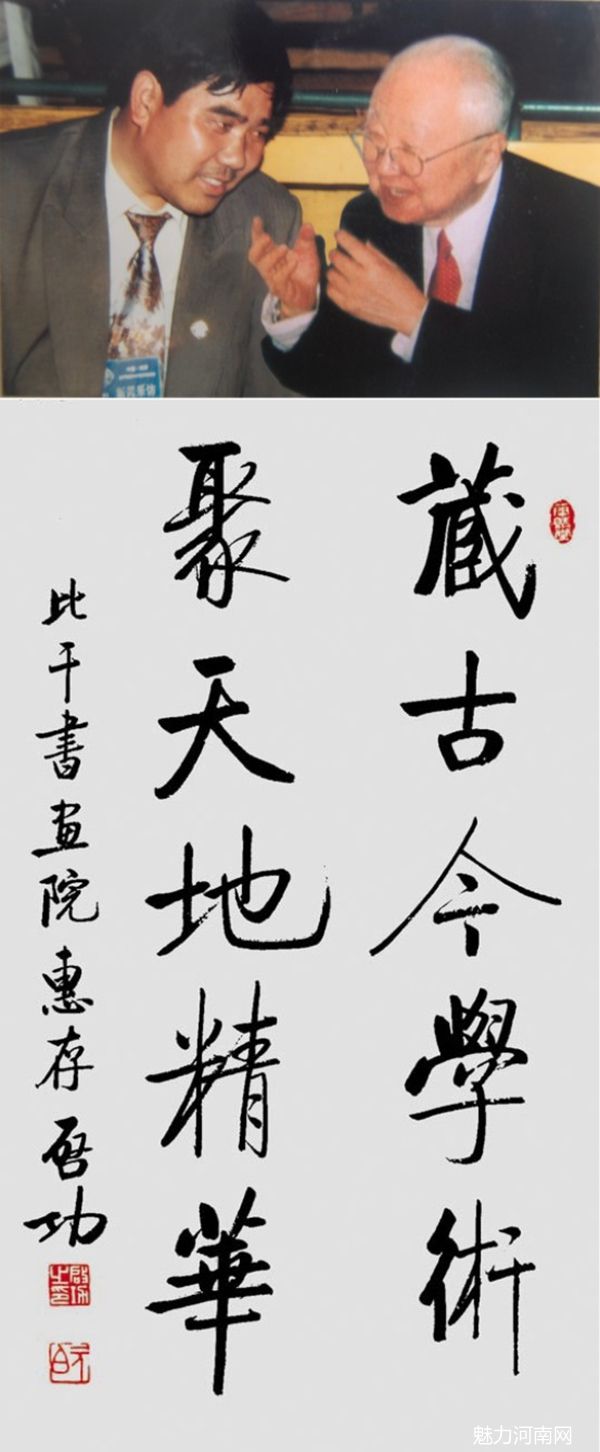 藏古今學術
聚天地精華
比干書画院惠存 啓功
啟功之印
魅力河南网